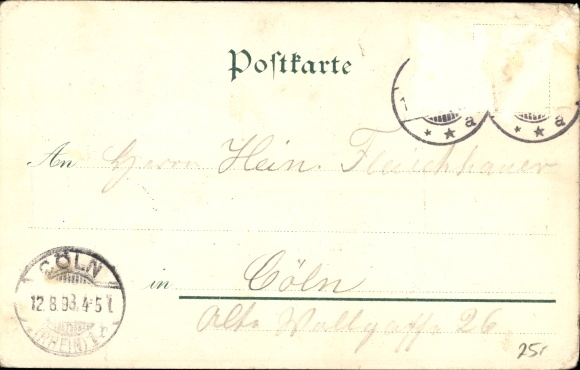 Postkarte
a
a
An Herrn Hein. Fleischhauer
in Cöln
Alte Wallgasse 26
CÖLN
12.8.98.4-5N.
(RHEIN) 1
25,